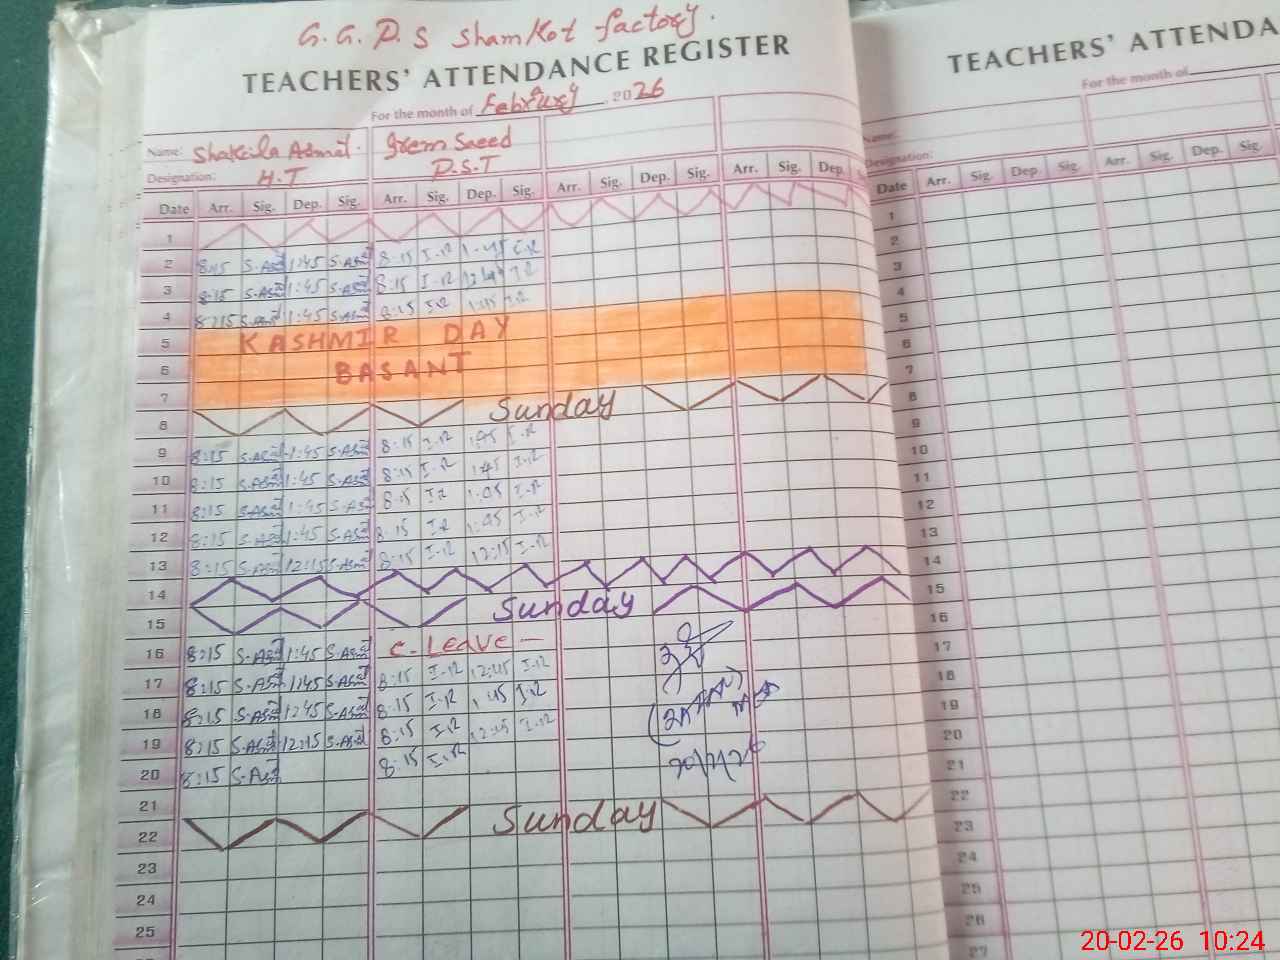 G.G.P.S Shamkot factory.
TEACHERS' ATTENDANCE REGISTER
For the month of February, 2026
Name: Shakila Asmat. Irem Saeed
Designation: H.T P.S.T
Date Arr. Sig. Dep. Sig. Arr. Sig. Dep. Sig. Arr. Sig. Dep. Sig. Arr. Sig. Dep.
1
2 8:15 S.Asmat 1:45 S.Asmat 8:15 I-R 1-45 I-R
3 8:15 S.Asmat 1:45 S.Asmat 8:15 I-R I-R
4 8:15 S.Asmat 1:45 S.Asmat 8:15 I-R I-R
5 KASHMIR DAY
6 BASANT
7
8 Sunday
9 8:15 S.Asmat 1:45 S.Asmat 8:15 I-R 1:45 I-R
10 8:15 S.Asmat 1:45 S.Asmat 8:15 I-R 1:45 I-R
11 8:15 S.Asmat 1:45 S.Asmat 8:15 I-R I-R
12 8:15 S.Asmat 1:45 S.Asmat 8:15 I-R 1:45 I-R
13 8:15 S.Asmat 12:15 S.Asmat 8:15 I-R 12:15 I-R
14
15 Sunday
16 8:15 S.Asmat 1:45 S.Asmat C-Leave
17 8:15 S.Asmat 1:45 S.Asmat 8:15 I-R I-R
18 8:15 S.Asmat 1:45 S.Asmat 8:15 I-R 1:45 I-R
19 8:15 S.Asmat 12:15 S.Asmat 8:15 I-R 12:15 I-R
20 8:15 S.Asmat 8:15 I-R
21
22 Sunday
23
24
25
TEACHERS' ATTENDA
For the month of
Name:
Designation:
Date Arr. Sig. Dep. Sig. Arr. Sig. Dep. Sig.
1
2
3
4
5
6
7
8
9
10
11
12
13
14
15
16
17
18
19
20
21
22
23
24
25
26
27
20-02-26 10:24